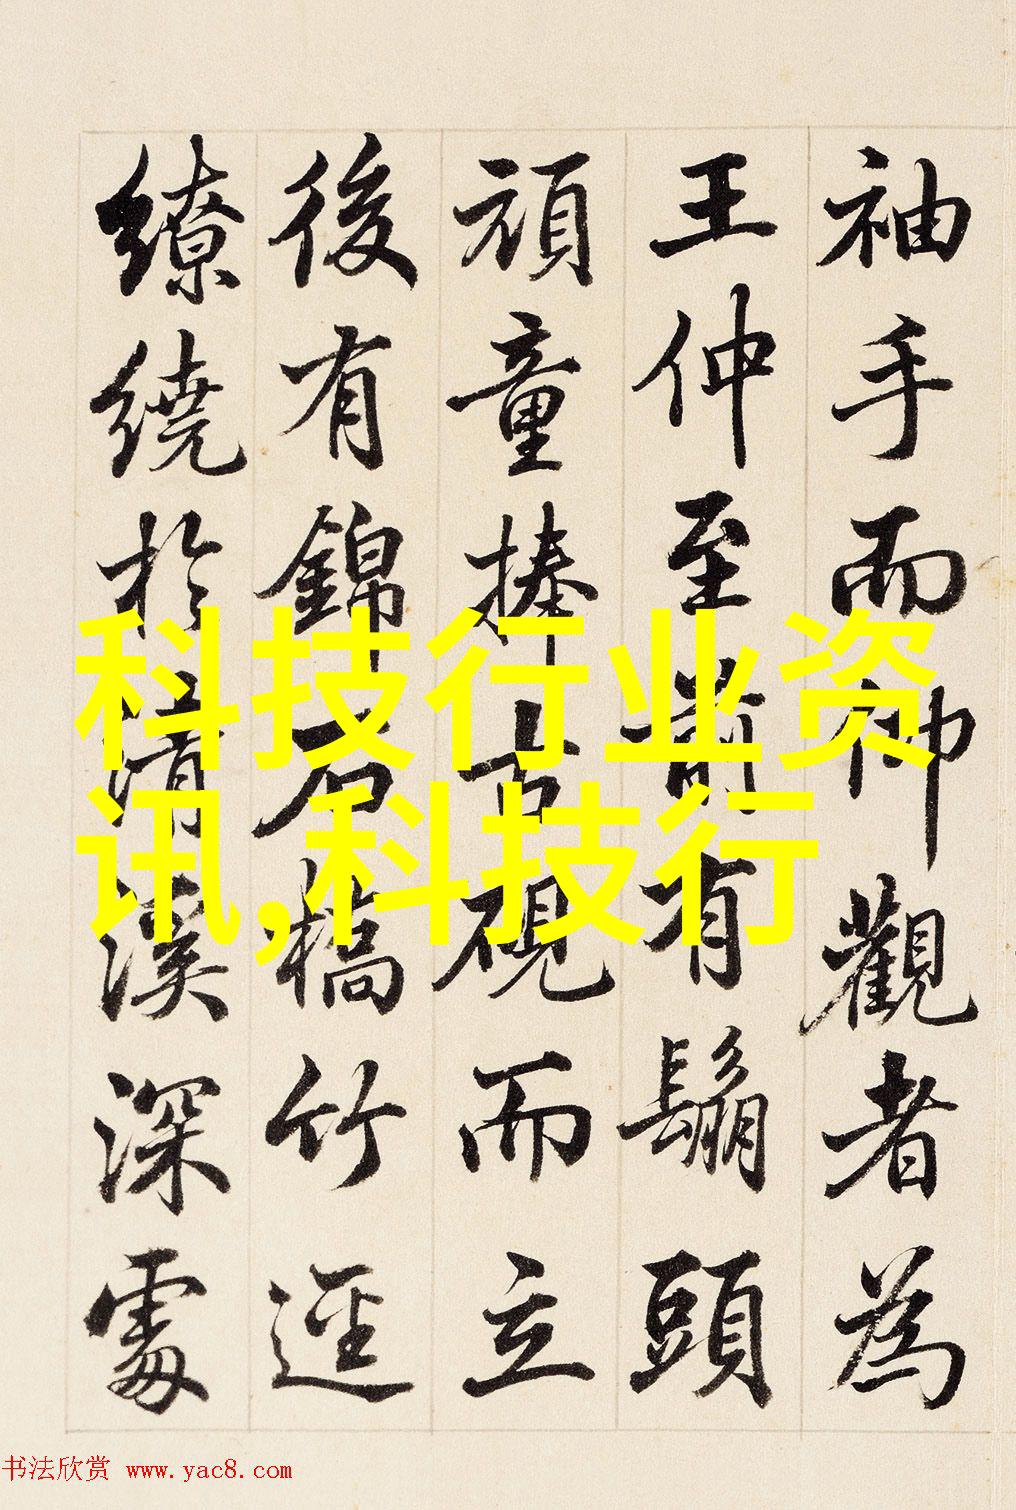 袖手而仰觀者為
王仲至前有鬅頭
頑童捧古硯而立
後有錦石橋竹逕
繚繞於清溪深處
科技行业资
讯,科技行
书法欣赏 www.yac8.com